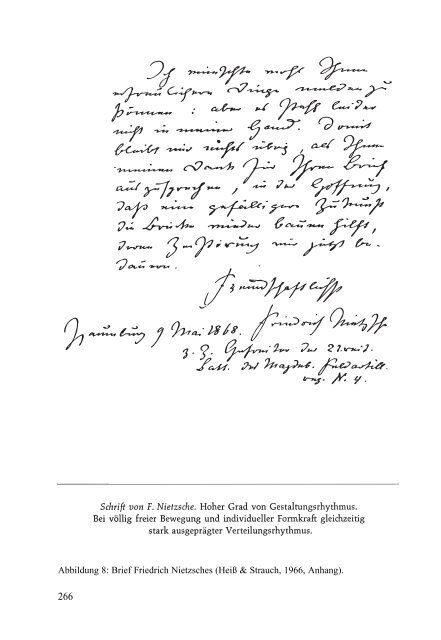 Ich wünschte wohl Ihnen
erfreulichere Dinge melden zu
können: aber es steht leider
nicht in meiner Hand. Damit
bleibt mir nichts übrig, als Ihnen
meinen Dank für Ihren Brief
auszusprechen, in der Hoffnung,
daß eine gefälligere Zukunft
die Brücke wieder bauen hilft,
deren Zerstörung wir jetzt be-
dauern.
Freundschaftlichst
Naumburg 9 Mai 1868. Friedrich Nietzsche
z. Z. Gefreiter der 2t. reit.
Batt. des Magdeb. Feldartill.
reg. N. 4.
Schrift von F. Nietzsche. Hoher Grad von Gestaltungsrhythmus.
Bei völlig freier Bewegung und individueller Formkraft gleichzeitig
stark ausgeprägter Verteilungsrhythmus.
Abbildung 8: Brief Friedrich Nietzsches (Heiß & Strauch, 1966, Anhang).
266